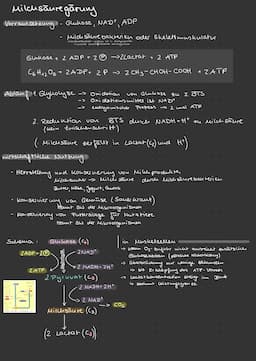 Milchsäuregärung
Voraussetzung: - Glukose, NAD⁺, ADP
- Milchsäurebakterien oder Skelettmuskulatur
Glukose + 2 ADP + 2 Ⓟ → 2 Lactat + 2 ATP
C₆H₁₂O₆ + 2 ADP + 2 P → 2 CH₃-CHOH-COOH + 2 ATP
Ablauf: 1. Glycolyse → Oxidation von Glukose zu 2 BTS
→ Oxidationsmittel ist NAD⁺
→ 2 mol ATP
2. Reduktion von BTS durch NADH+H⁺ zu Milchsäure
(Milchsäure zerfällt in Lactat (C₃) und H⁺)
wirtschaftliche Nutzung
- Herstellung und Konservierung von Milchprodukten
Milchzucker → Milchsäure durch Milchsäurebakterien
Butter, Käse, Jogurt, Quark
- Konservierung von Gemüse (Sauerkraut)
hemmt die Mikroorganismen
- Konservierung von Futtersilage für Nutztiere
hemmt die Mikroorganismen
Schema: Glukose (C₆)
2 ADP + 2Ⓟ
2 NAD⁺
2 ATP
2 NADH + 2H⁺
2 Pyruvat (C₃)
2 NADH + 2H⁺
2 NAD⁺
CO₂
Milchsäure (C₃)
(2 Lactat (C₃))
in Muskelzellen